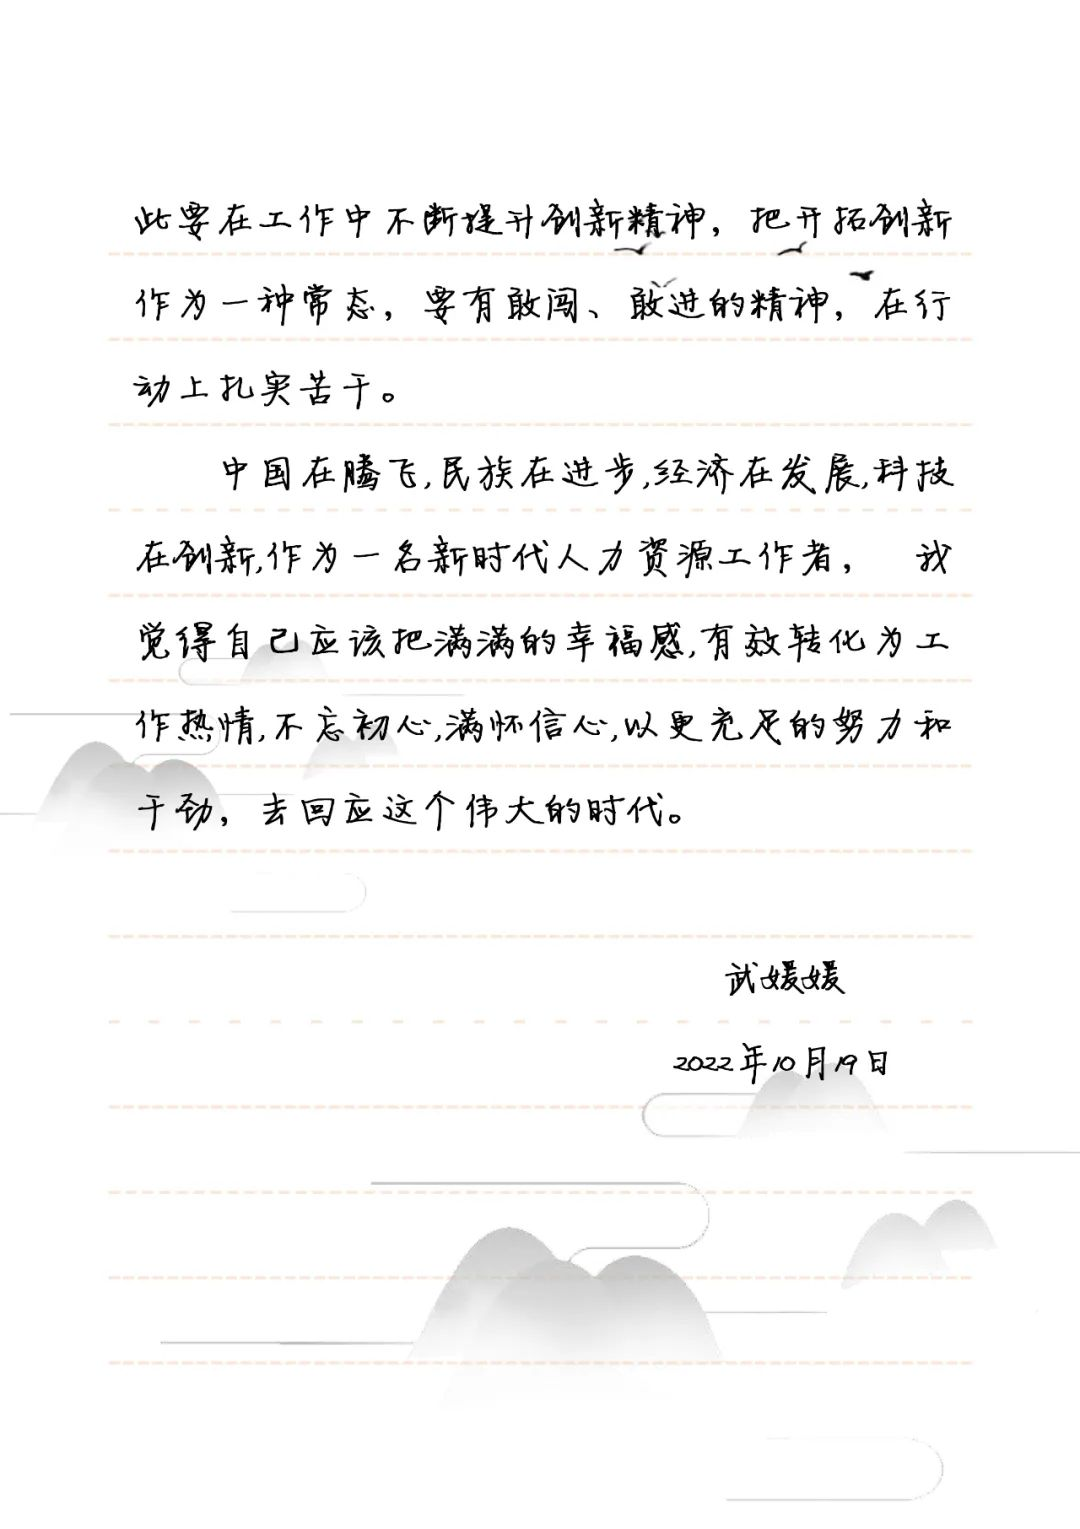 此要在工作中不断提升创新精神，把开拓创新
作为一种常态，要有敢闯、敢进的精神，在行
动上扎实苦干。
中国在腾飞,民族在进步,经济在发展,科技
在创新,作为一名新时代人力资源工作者， 我
觉得自己应该把满满的幸福感,有效转化为工
作热情,不忘初心,满怀信心,以更充足的努力和
干劲，去回应这个伟大的时代。
武媛媛
2022年10月19日